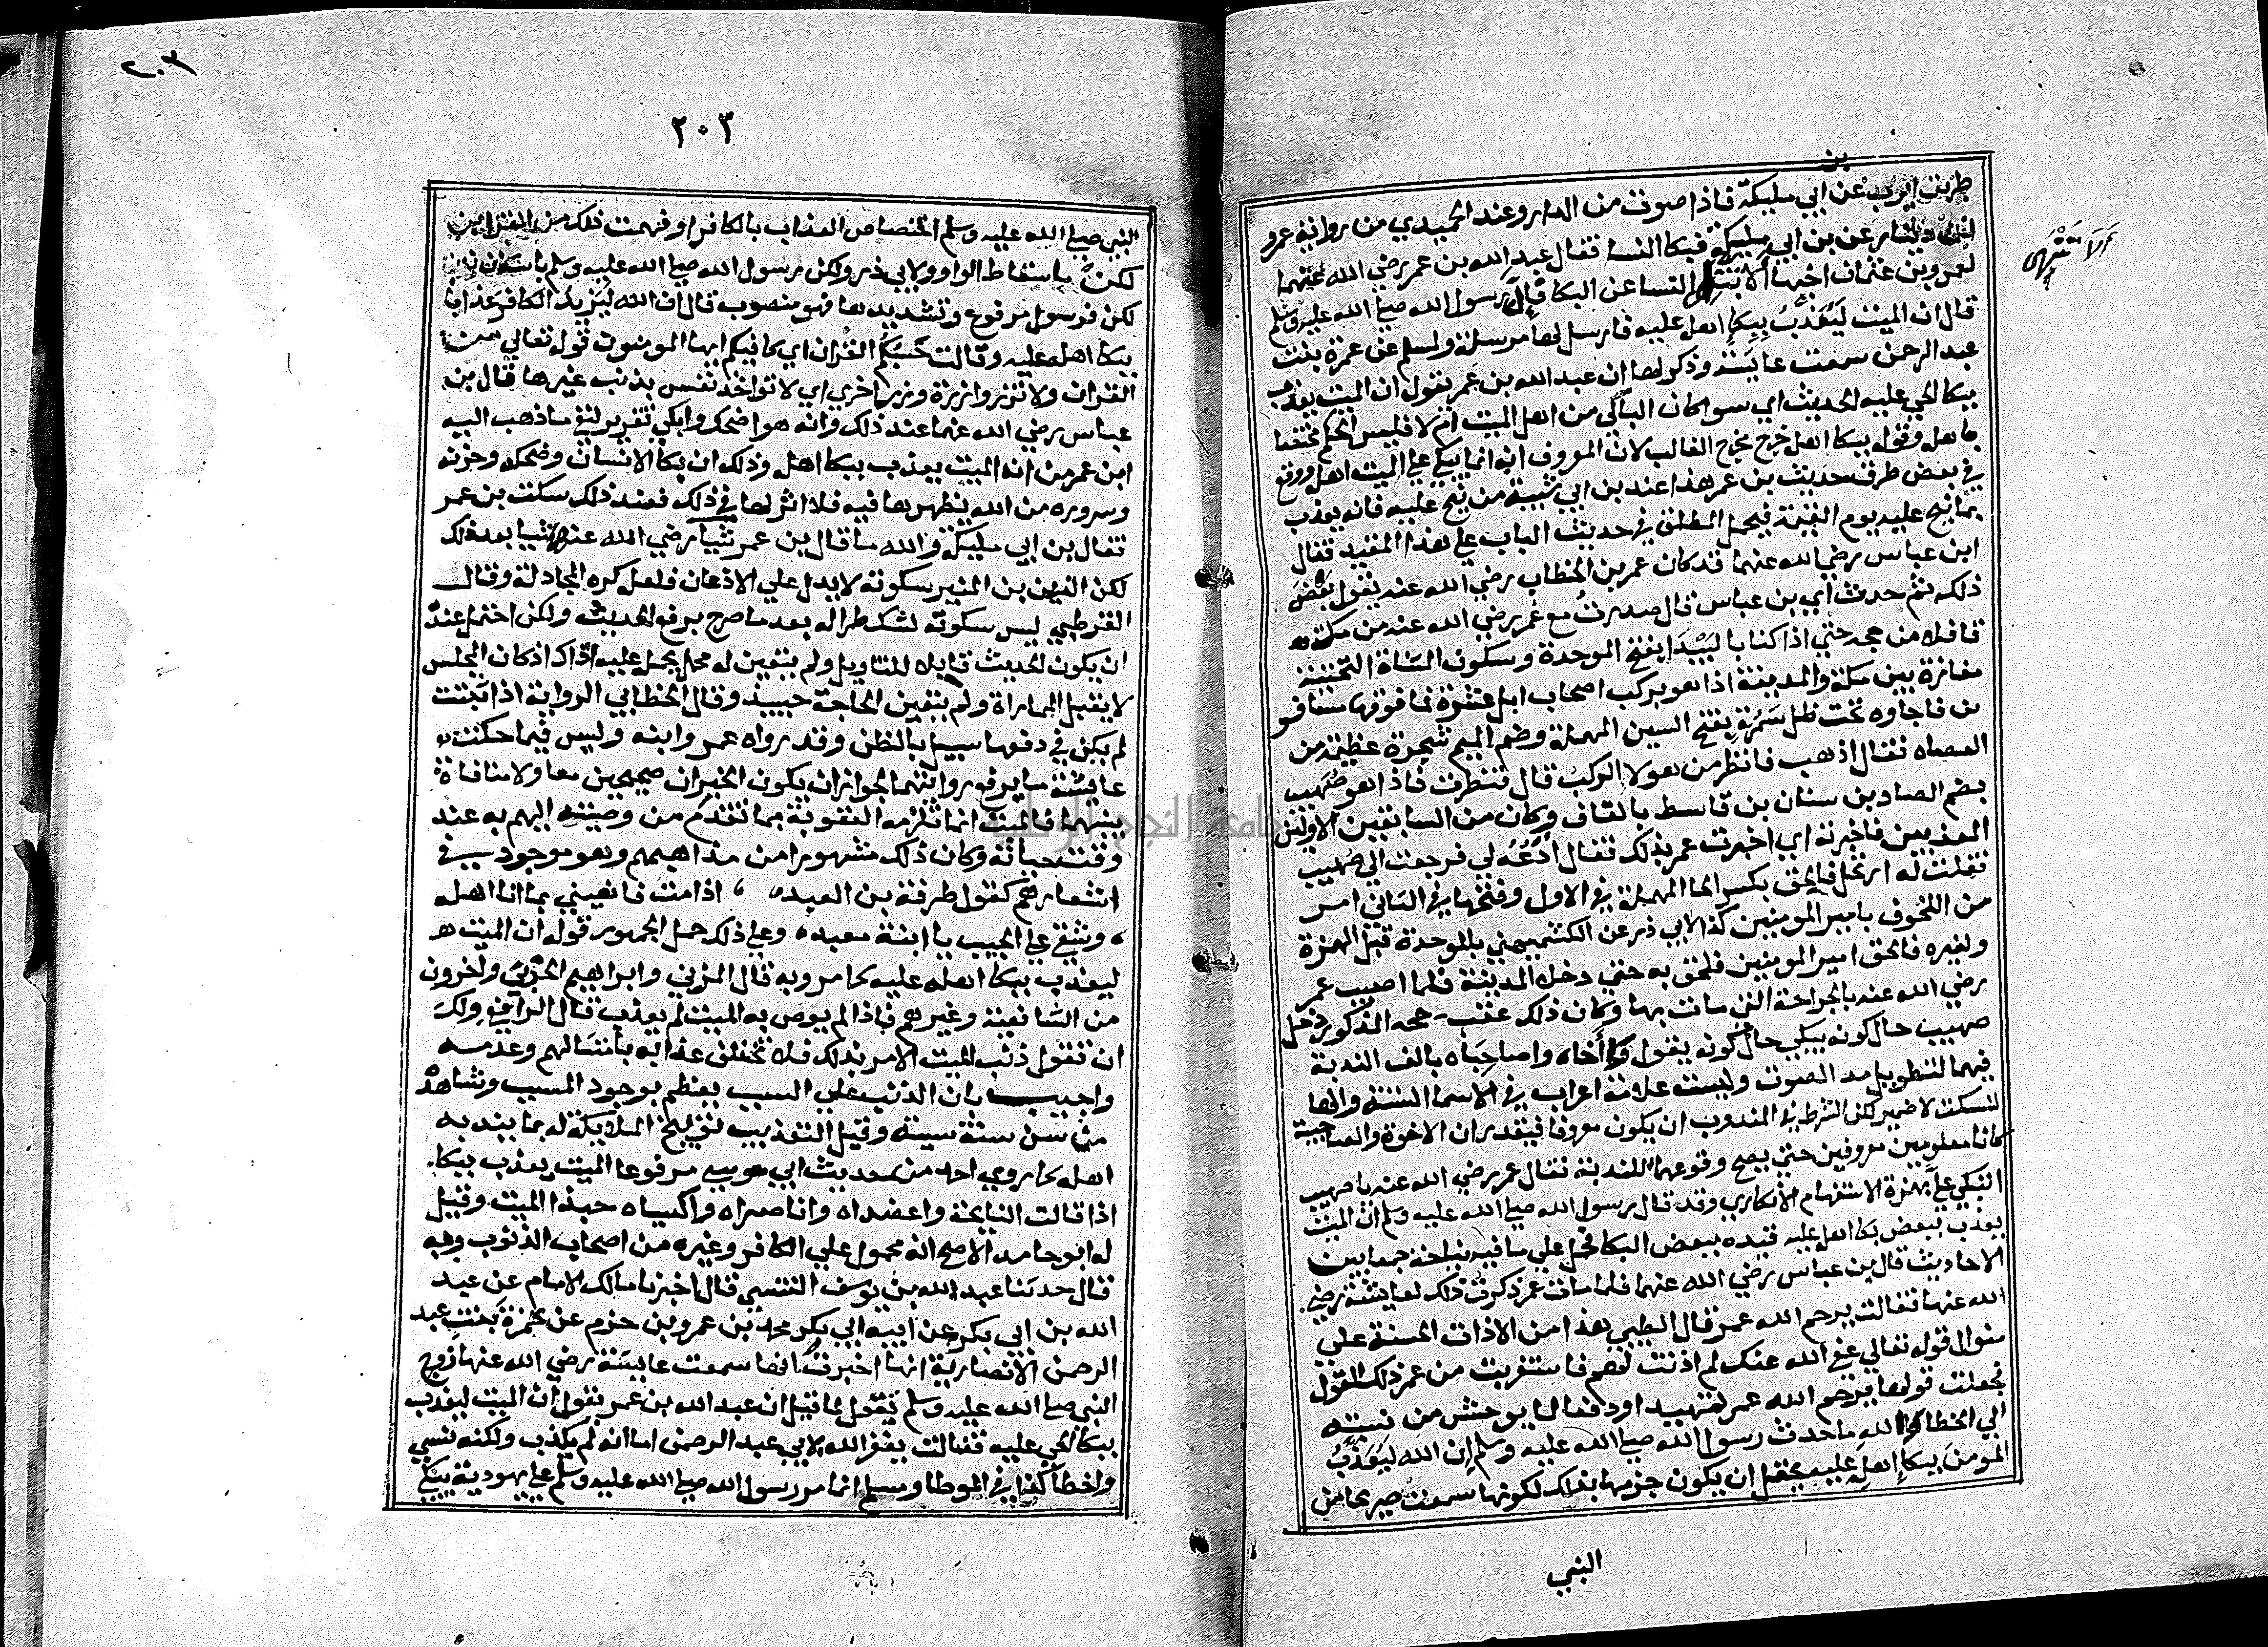 بن
طريق ايوب عن ابي مليكة فاذا صوت من الدار وعند الحميدي من رواية عمرو
بن دينار عن بن ابي مليكة فبكا النسا فقال عبد الله بن عمر رضي الله عنهما
لعمرو بن عثمان اخيها ألا تنهي النسا عن البكا فإن رسول الله صلي الله عليه وسلم
قال ان الميت ليُعَذَّبُ ببكاءِ اهله عليه فارسل لها مرسلة ولمسلم عن عمرة بنت
عبد الرحمن سمعت عايشة وذكر لها ان عبد الله بن عمر يقول ان الميت يعذب
ببكا الحي عليه الحديث اي سوا كان الباكي من اهل الميت ام لا فليس الحكم مختصا
باهله وقوله ببكا اهله خرج مخرج الغالب لان المعروف انه انما يبكي علي الميت اهله ووقع
في بعض طرق حديث بن عمر هذا عند بن ابي شيبة من نيح عليه فانه يعذب
بما نيح عليه يوم القيمة فيحمل المطلق في حديث الباب علي هذا المقيد فقال
ابن عباس رضي الله عنهما قد كان عمر بن الخطاب رضي الله عنه يقول بعض
ذلك ثم حدث اي بن عباس قال صدرتُ مع عمر رضي الله عنه من مكة
قافلا من حجه حتي اذا كنا بالبَيْدَا بفتح الموحدة وسكون المثناة التحتية
مفازة بين مكة والمدينة اذا هو بركب اصحاب ابل عشرة فما فوقها مسافرو
ن فاجاوه تحت ظل سَمُرَةٍ بفتح السين المهملة وضم الميم شجرة عظيمة من
العضاه فقال اذهب فانظر من هولا الركب قال فنظرت فاذا هو صُهَيب
بضم الصاد بن سنان بن قاسط بالقاف وكان من السابقين الاولين
المعذبين فاخبرته اي اخبرت عمر بذلك فقال ادْعُهُ لي فرجعت الي صهيب
فقلت له ارتحل فالحق بكسر الحا المهملة في الاول وفتحها في الثاني امر
من اللحوق بامير المومنين كذا لابي ذر عن الكشميهني بالموحدة قبل الهمزة
ولغيره فالحق امير المومنين فلحق به حتي دخل المدينة فلما اصيب عمر
رضي الله عنه بالجراحة التي مات بها وكان ذلك عقب حجه المذكور دخل
صهيب حال كونه يبكي حال كونه يقول وا أَخاه واصاحِبَاه بالف الندبة
فيهما لتطويل مد الصوت وليست علامة اعراب في الاسما الستة والها
للسكت لا ضمير لكن الشرط في المندوب ان يكون معروفا فيقدر ان الاخوة والصاحبية
كانا معلومين معروفين حتي يصح وقوعهما للندبة فقال عمر رضي الله عنه يا صهيب
اتبكي عليَّ بهمزة الاستفهام الانكاري وقد قال رسول الله صلي الله عليه وسلم ان الميت
يعذب ببعض بكا اهله عليه قيده ببعض البكا فحمل علي ما فيه نياحة جمعا بين
الاحاديث قال بن عباس رضي الله عنهما فلما مات عمر ذكرتُ ذلك لعايشة رضي
الله عنها فقالت يرحم الله عمر قال الطيبي هذا من الاداب الحسنة علي
منوال قوله تعالي عفي الله عنك لم اذنت لهم فاستغربت من عمر ذلك القول
فجعلت قولها يرحم الله عمر تمهيدا ودفعا لما يوحش من نسبته
الي الخطا والله ما حدث رسول الله صلي الله عليه وسلم إن الله ليُعَذِّبُ
المومنَ ببكاءِ اهلهِ عليه يحتمل ان يكون جزمها بذلك لكونها سمعت صريحا من
النبي
٢٠٣
٢٠٣
النبي صلي الله عليه وسلم اختصاص العذاب بالكافر او فهمت ذلك من القراين
لكن باسقاط الواو ولابي ذر ولكن رسول الله صلي الله عليه وسلم باسكان نون
لكن فرسول مرفوع وتشديدها فهو منصوب قال ان الله ليَزيدُ الكافر عذابا
ببكا اهله عليه وقالت حَسْبُكُمُ القران اي كافيكم ايها المومنون قوله تعالي من
القران ولا تزر وازرة وزر اخري اي لا تواخذ نفس بذنب غيرها قال بن
عباس رضي الله عنهما عند ذلك وانه هو اضحك وابكي تقرير لنفي ما ذهب اليه
ابن عمر من انه الميت يعذب ببكا اهله وذلك ان بكا الانسان وضحكه وحزنه
وسروره من الله يظهرها فيه فلا اثر لها في ذلك فعند ذلك سكت بن عمر
فقال بن ابي مليكة والله ما قال بن عمر شيا رضي الله عنهما شيا بعد ذلك
لكن الزين بن المنير سكوته لا يدل علي الاذعان فلعل كره المجادلة وقال
القرطبي ليس سكوته لشك طرا له بعد ما صرح برفع الحديث ولكن احتمل عنده
ان يكون الحديث قابلا للتاويل ولم يتعين له محمل يحمل عليه اذ ذاك اذ كان المجلس
لا يقبل المماراة ولم يتعين الحاجة حينيذ وقال الخطابي الرواية اذا ثبتت
لم يكن في دفعها سبيل بالظن وقد رواه عمر وابنه وليس فيما حكت
عايشة ما يرفع روايتهما لجواز ان يكون الخبران صحيحين معا ولا منافاة
بينهما فالميت انما تلزمه العقوبة بما تقدم من وصيته اليهم به عند
وقت حياته وكان ذلك مشهورا من مذاهبهم وهو موجود في
اشعارهم كقول طرفة بن العبد، اذا مت فانعيني بما انا اهله
، وشقي علي الجيب يا ابنة معبد، وعلي ذلك حمل الجمهور قوله ان الميت
ليعذب ببكا اهله عليه كما مر وبه قال المزني وابراهيم الحَرْبيّ واخرون
من الشافعية وغيرهم فاذا لم يوص به الميت لم يعذب قال الرافعي ولك
ان تقول ذنب الميت الامر بذلك فلا تختلف عذابه بامتثالهم وعدمه
واجيب بان الذنب علي السبب يعظم بوجود المسبب وشاهدُ
من سن سنة سيية وقيل التعذيب توبيخ الملايكة له بما يندبه به
اهله كما روي احمد من حديث ابي موسي مرفوعا الميت يعذب ببكاء
اذا قالت النايحة واعضداه وا ناصراه واكاسياه حبذا الميت وقيل
له ابو حامد الاصح انه محمول علي الكافر وغيره من اصحاب الذنوب وبه
قال حدثنا عبد الله بن يوسف التنيسي قال اخبرنا مالك الامام عن عبد
الله بن ابي بكر عن ابيه ابي بكر محمد بن عمرو بن حزم عن عَمْرَةَ بَنتِ عبد
الرحمن الانصارية انها اخبرته انها سمعت عايشة رضي الله عنها زوج
النبي صلي الله عليه وسلم تقول لما قيل ان عبد الله بن عمر يقول ان الميت ليعذب
ببكا الحي عليه فقالت يغفر الله لابي عبد الرحمن اما انه لم يكذب ولكنه نسي
واخطا كذا في الموطا ومسلم انما مر رسول الله صلي الله عليه وسلم علي يهودية يبكي
جامعة النجاح الوطنية